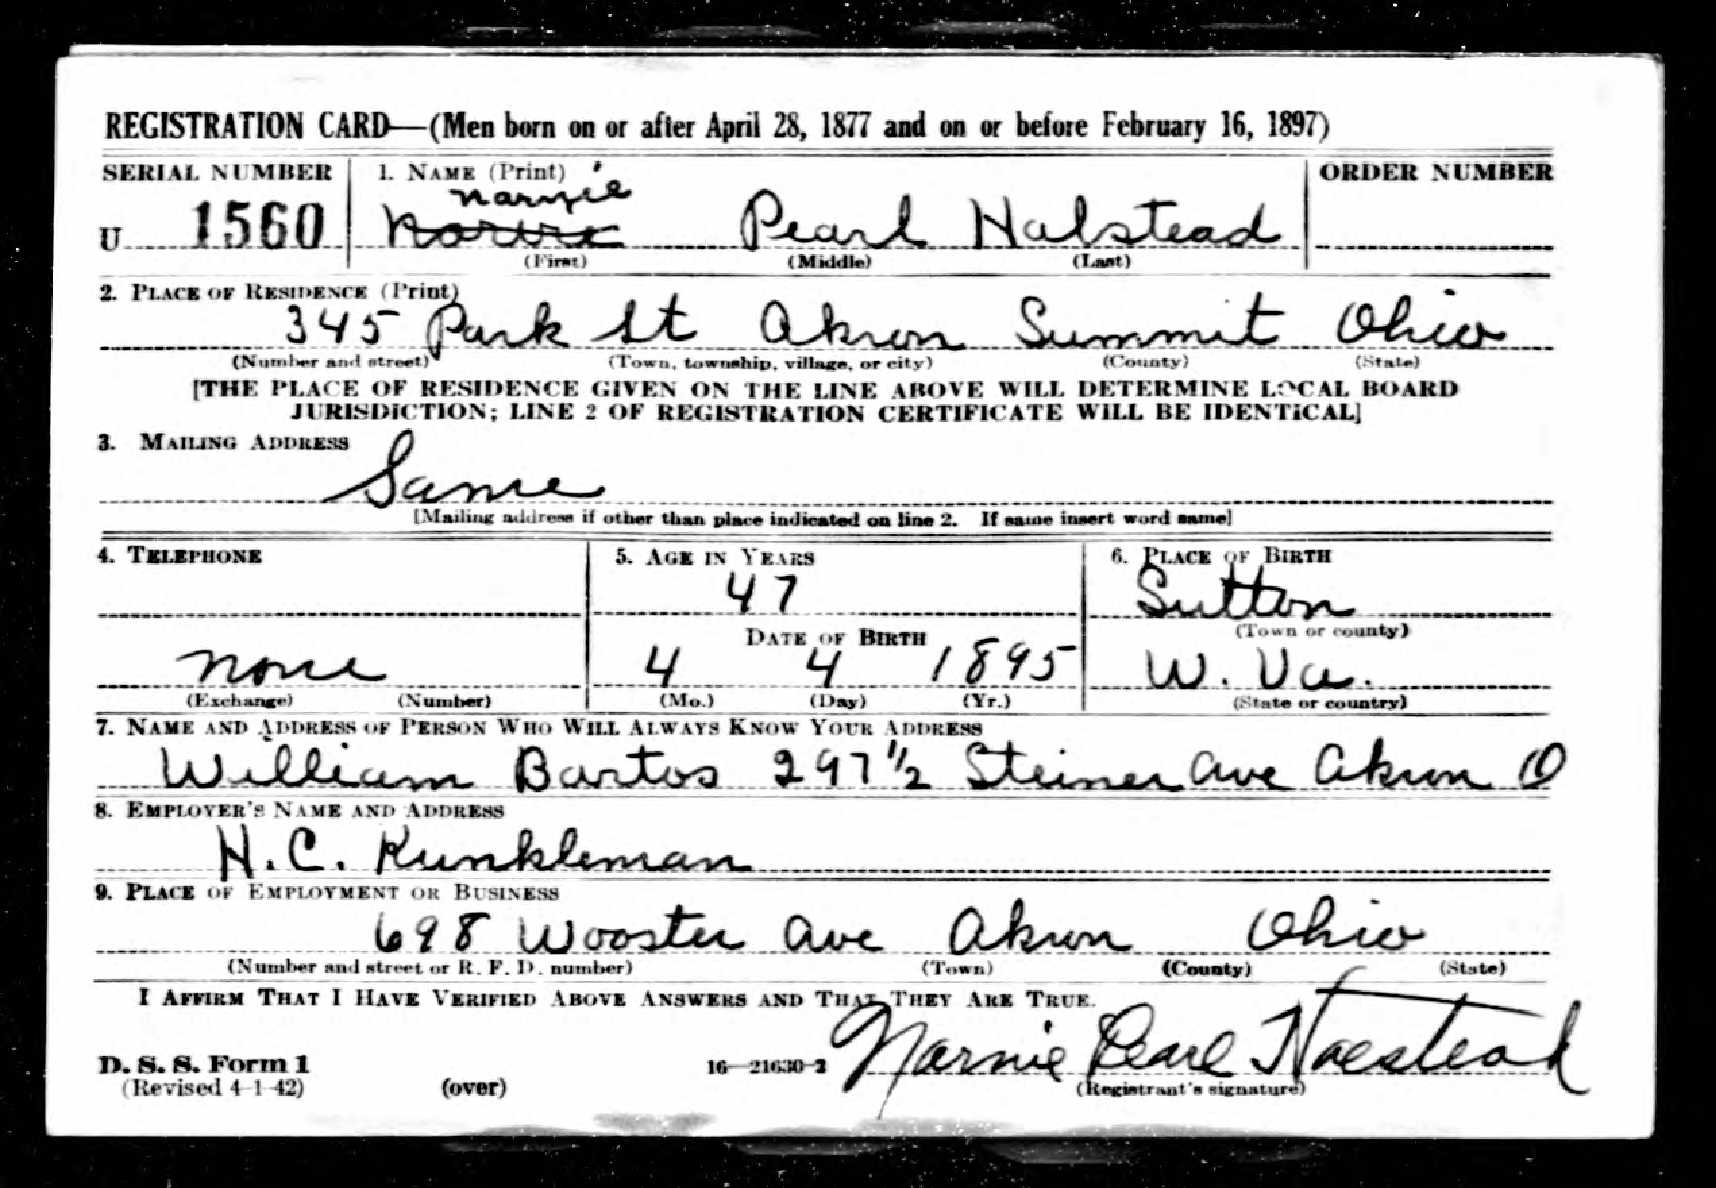 REGISTRATION CARD—(Men born on or after April 28, 1877 and on or before February 16, 1897)
SERIAL NUMBER 1. NAME (Print) ORDER NUMBER
Narnie
U 1560 Pearl Halstead
(First) (Middle) (Last)
2. PLACE OF RESIDENCE (Print)
345 Park St Akron Summit Ohio
(Number and street) (Town, township, village, or city) (County) (State)
[THE PLACE OF RESIDENCE GIVEN ON THE LINE ABOVE WILL DETERMINE LOCAL BOARD
JURISDICTION; LINE 2 OF REGISTRATION CERTIFICATE WILL BE IDENTICAL]
3. MAILING ADDRESS
Same
[Mailing address if other than place indicated on line 2. If same insert word same]
4. TELEPHONE 5. AGE IN YEARS 6. PLACE OF BIRTH
47 Sutton
DATE OF BIRTH (Town or county)
none 4 4 1895 W. Va.
(Exchange) (Number) (Mo.) (Day) (Yr.) (State or country)
7. NAME AND ADDRESS OF PERSON WHO WILL ALWAYS KNOW YOUR ADDRESS
William Bartos 297 1/2 Steiner Ave Akron O
8. EMPLOYER'S NAME AND ADDRESS
H. C. Kunkleman
9. PLACE OF EMPLOYMENT OR BUSINESS
698 Wooster Ave Akron Ohio
(Number and street or R. F. D. number) (Town) (County) (State)
I AFFIRM THAT I HAVE VERIFIED ABOVE ANSWERS AND THAT THEY ARE TRUE.
D. S. S. Form 1 16—21630-2 Narnie Pearl Halstead
(Revised 4-1-42) (over) (Registrant's signature)